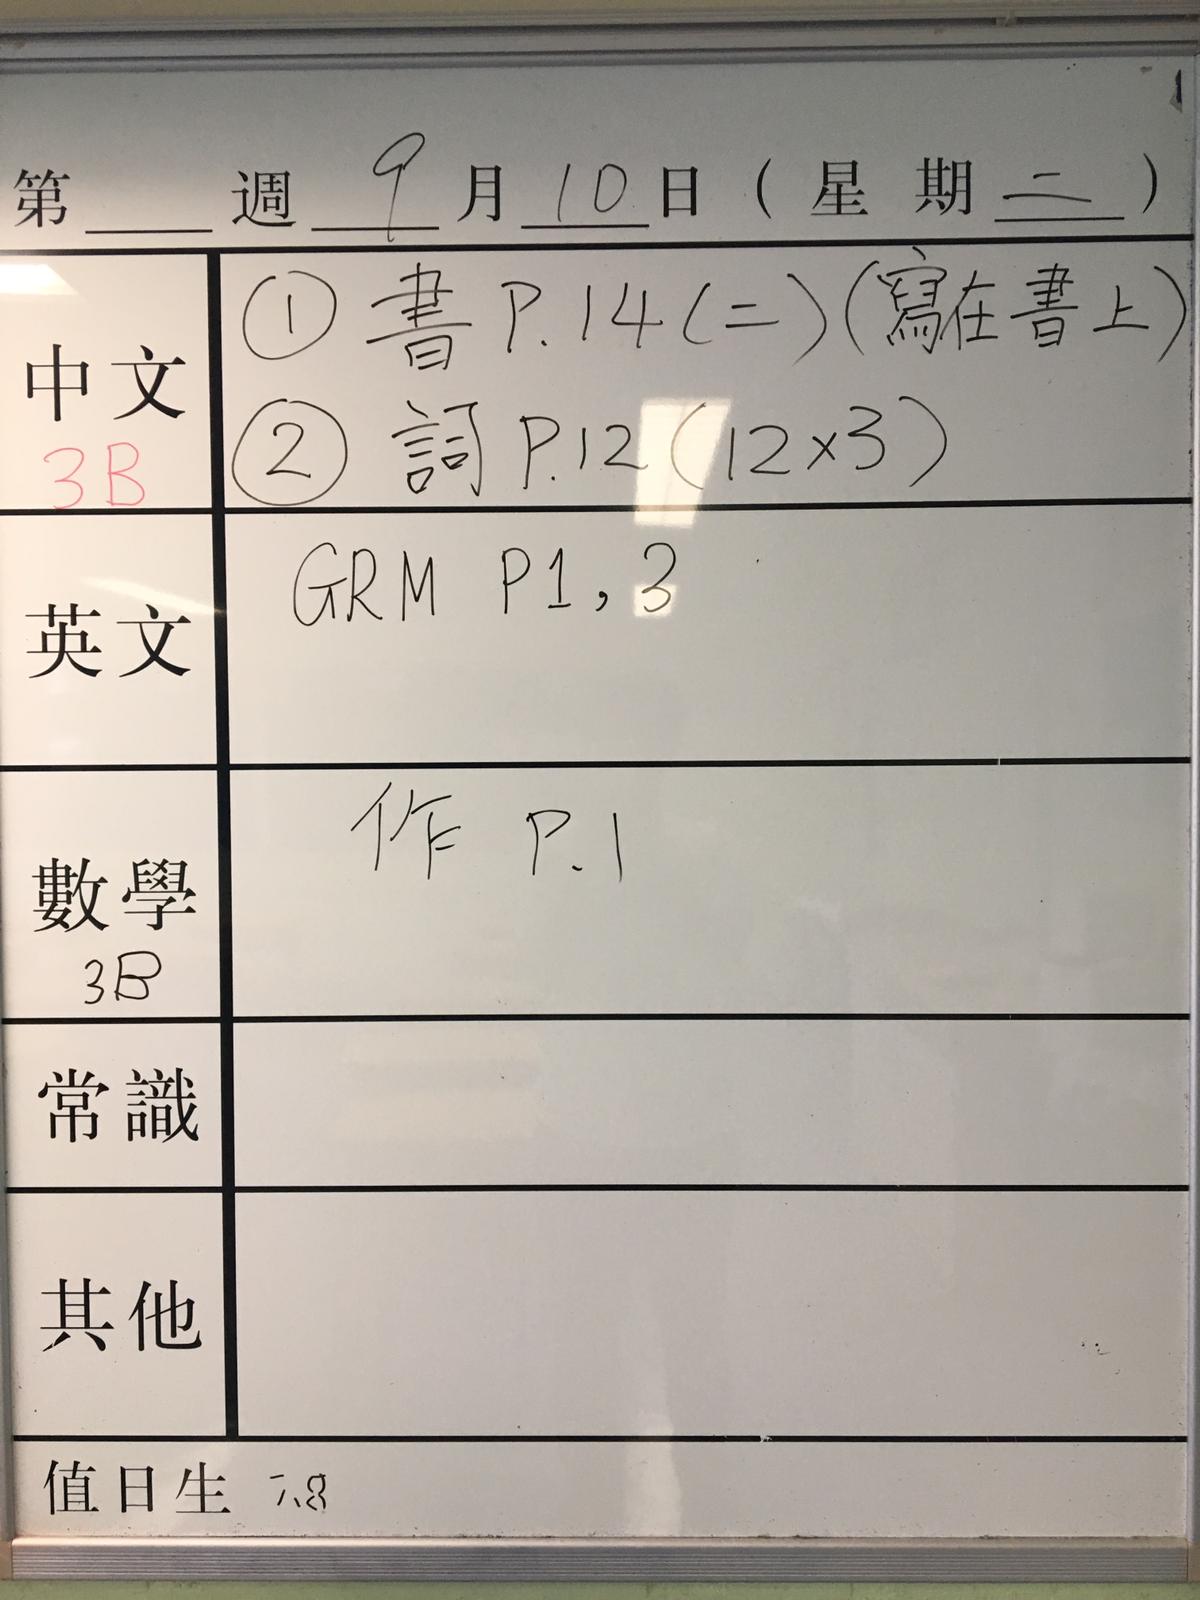 第 週 9 月 10 日 ( 星 期 二 )
中文
3B
① 書 P.14(二)(寫在書上)
② 詞 P.12(12x3)
英文
GRM P1,3
數學
3B
作 P.1
常識
其他
值日生